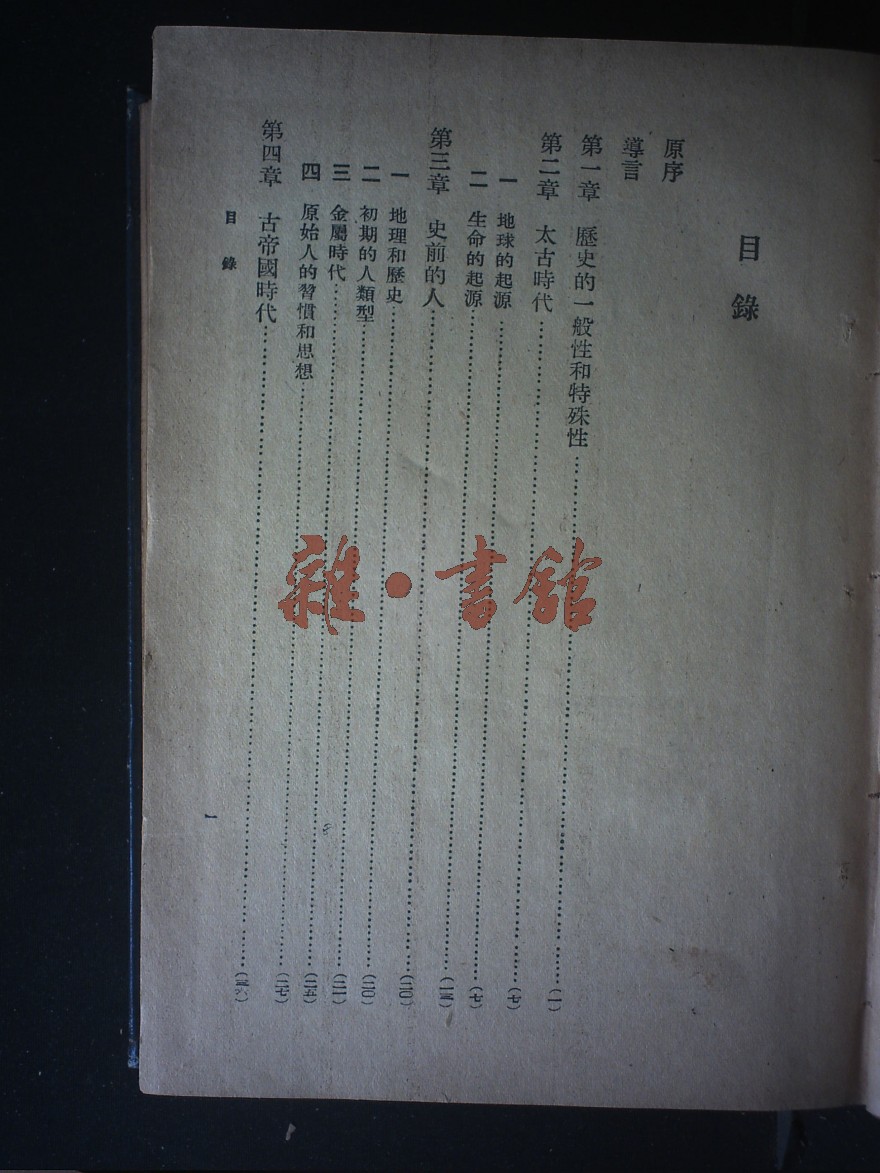 目錄
原序
導言
第一章 歷史的一般性和特殊性……(一)
第二章 太古時代……(七)
一 地球的起源……(七)
二 生命的起源……(一三)
第三章 史前的人……(二〇)
一 地理和歷史……(二〇)
二 初期的人類型……(二一)
三 金屬時代……(二五)
四 原始人的習慣和思想……(二七)
第四章 古帝國時代……(三六)
目錄
一
雜·書館